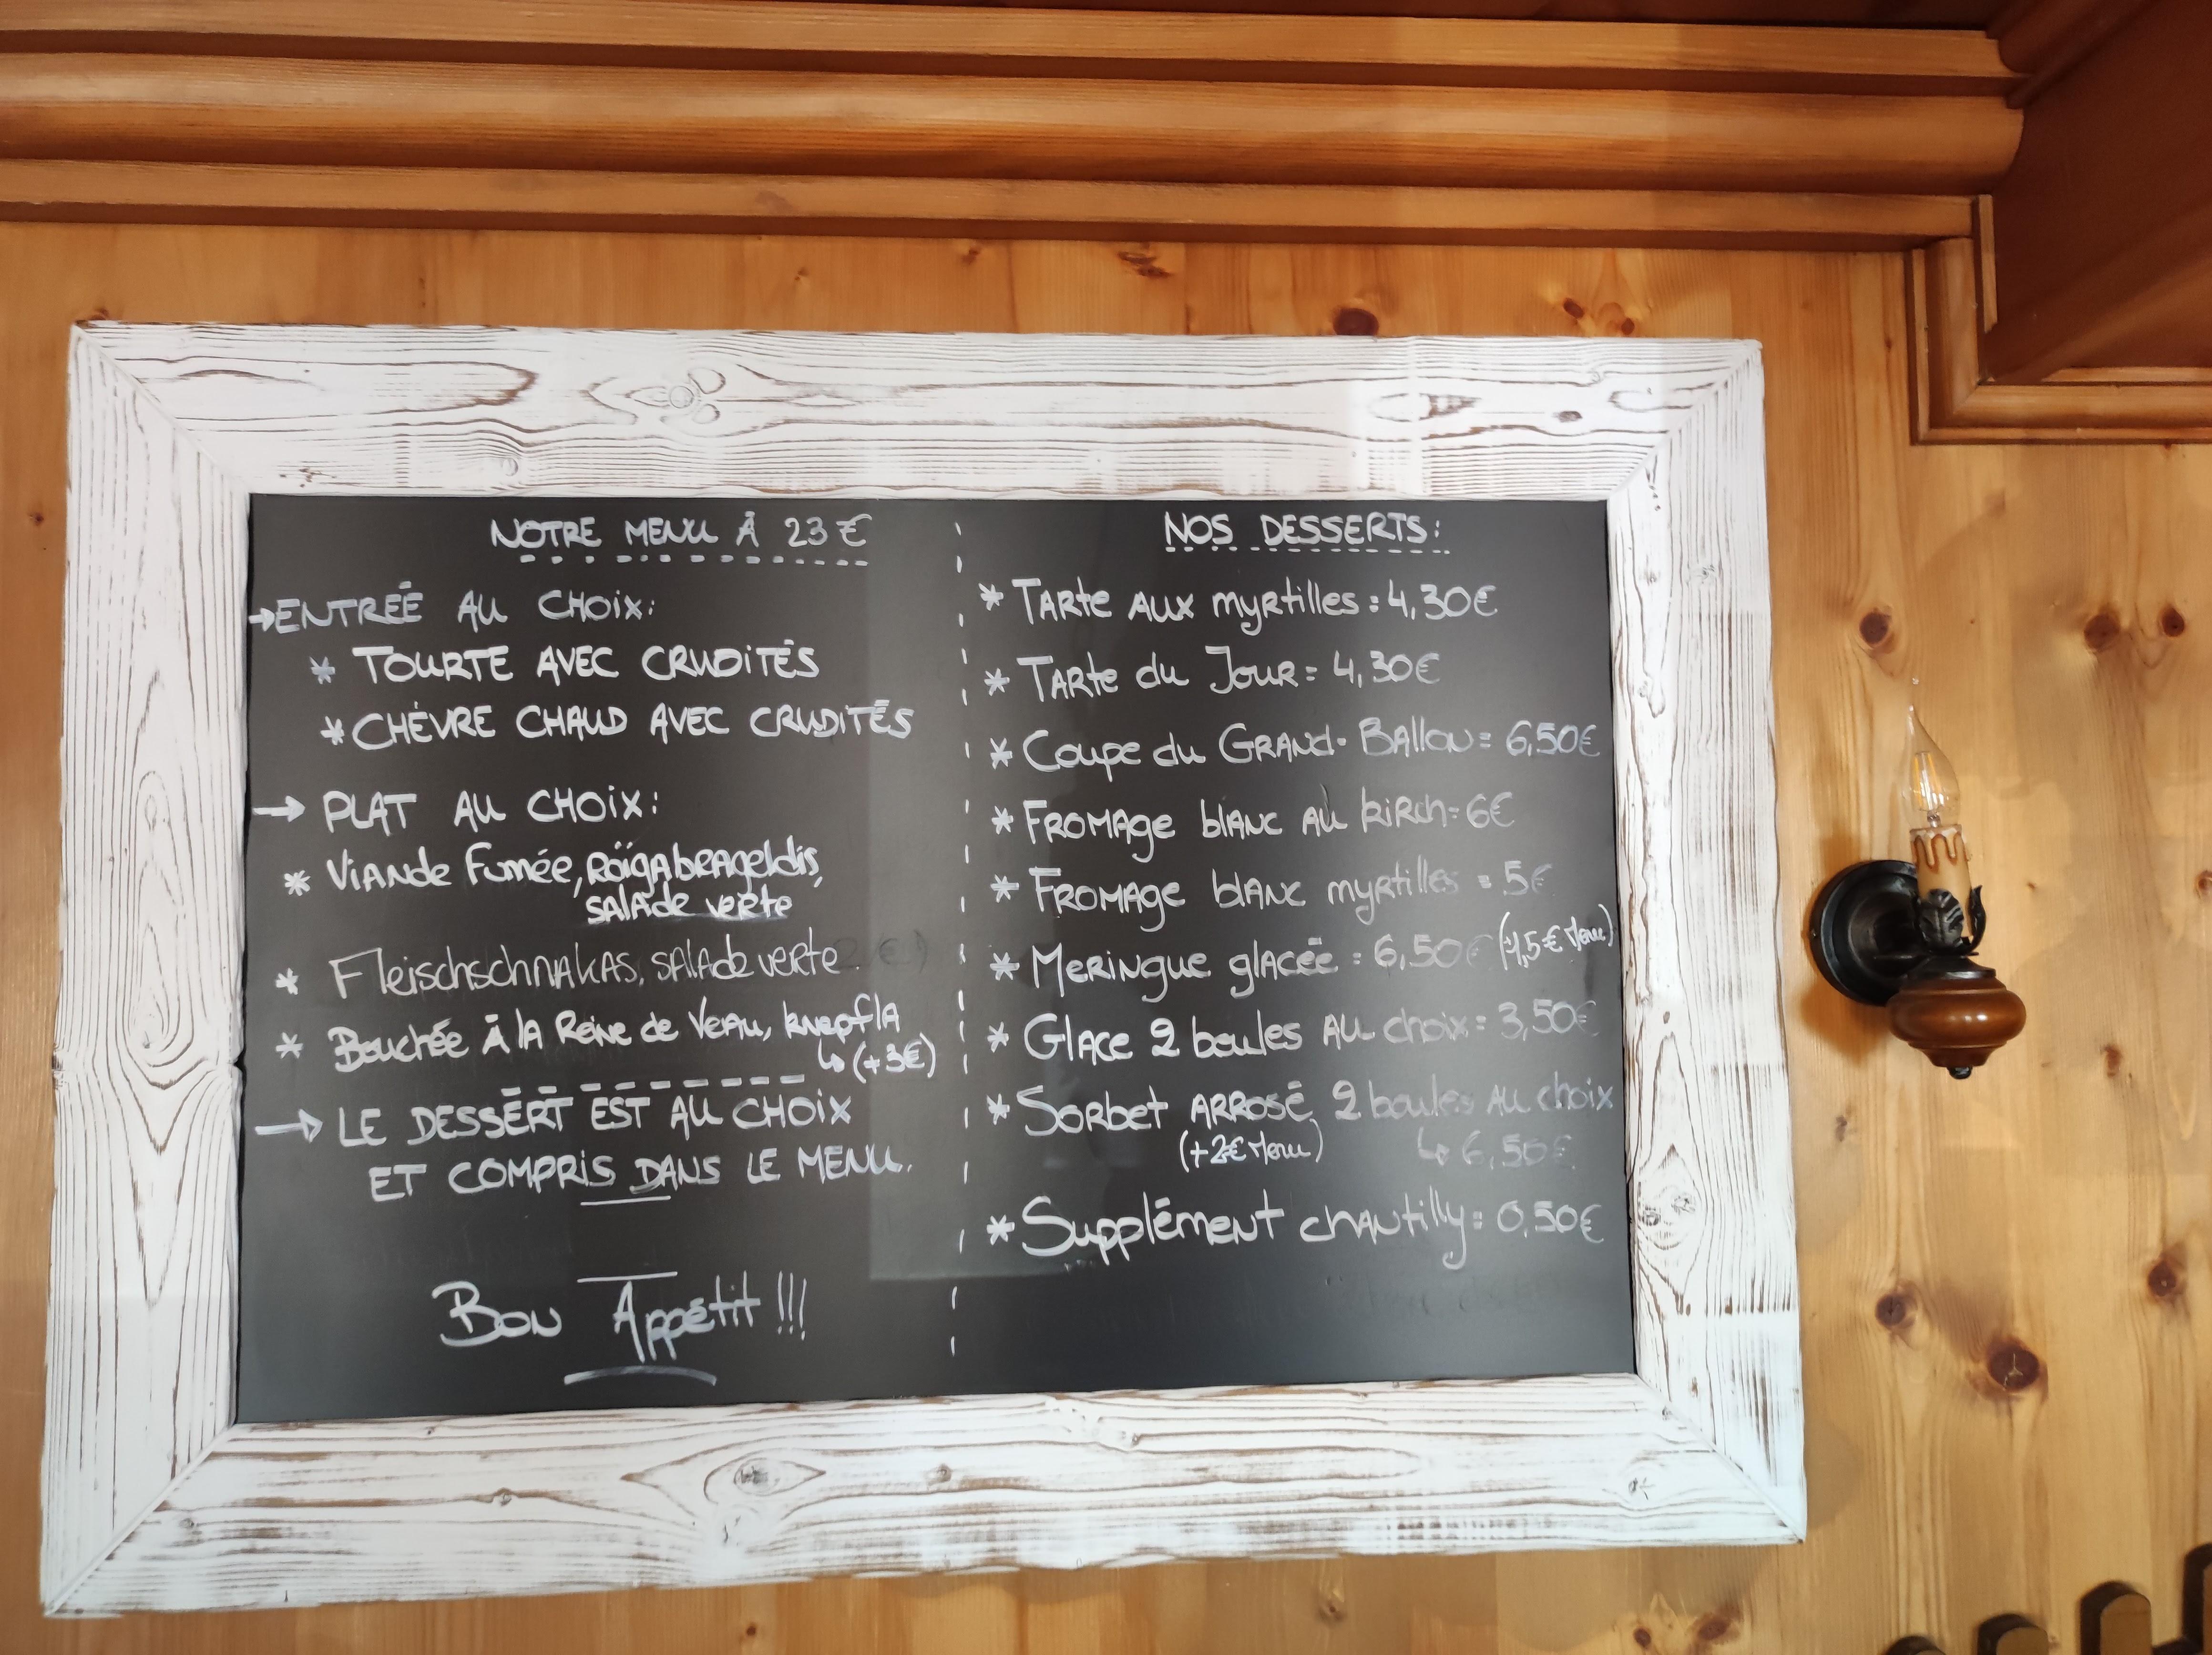 NOTRE MENU À 23 €
→ ENTRÉE AU CHOIX:
* TOURTE AVEC CRUDITÉS
* CHÈVRE CHAUD AVEC CRUDITÉS
→ PLAT AU CHOIX:
* Viande Fumée, Roïgabrageldis,
salade verte
* Fleischschnakas, salade verte
* Bouchée À la Reine de Veau, knepfla
↳ (+3€)
→ LE DESSERT EST AU CHOIX
ET COMPRIS DANS LE MENU.
Bon Appétit !!!
NOS DESSERTS:
* Tarte aux myrtilles = 4,30€
* Tarte du Jour = 4,30€
* Coupe du Grand-Ballon = 6,50€
* Fromage blanc au kirch = 6€
* Fromage blanc myrtilles = 5€
* Meringue glacée = 6,50€ (+1,5€ Menu)
* Glace 2 boules au choix = 3,50€
* Sorbet arrosé 2 boules au choix
(+2€ Menu) ↳ 6,50€
* Supplément chantilly = 0,50€